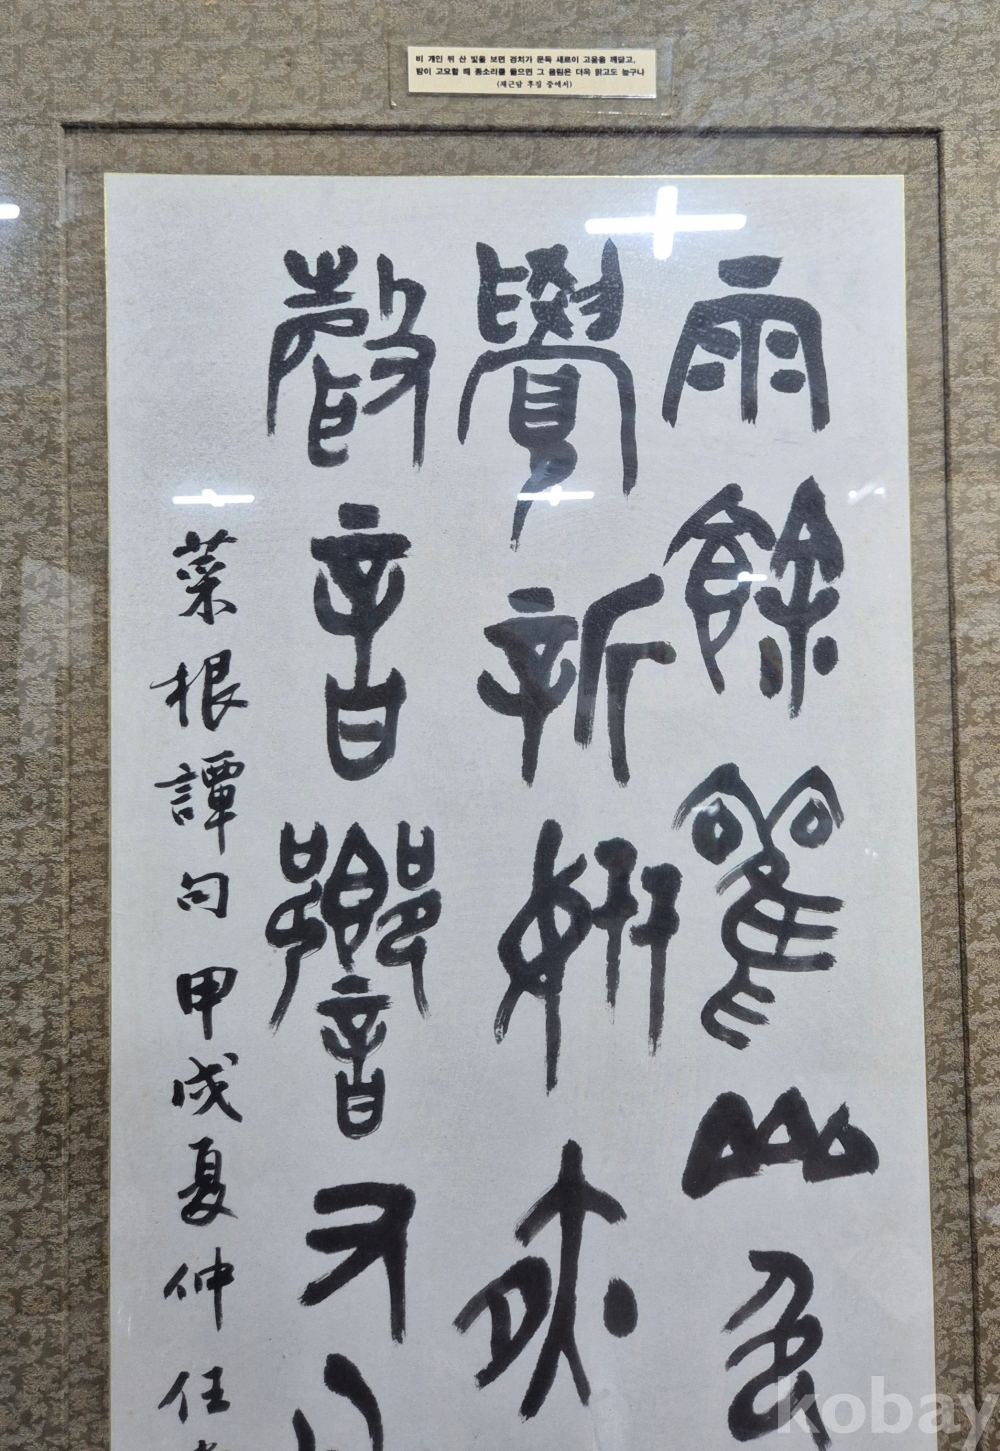 비 개인 뒤 산 빛을 보면 경치가 문득 새로이 고움을 깨닫고,
밤이 고요할 때 종소리를 들으면 그 울림은 더욱 맑고도 높구나
(채근담 후집 중에서)
雨餘雚山色
覺新姸夜
聲音響尤
菜根譚句 甲戌夏仲 任
kobay